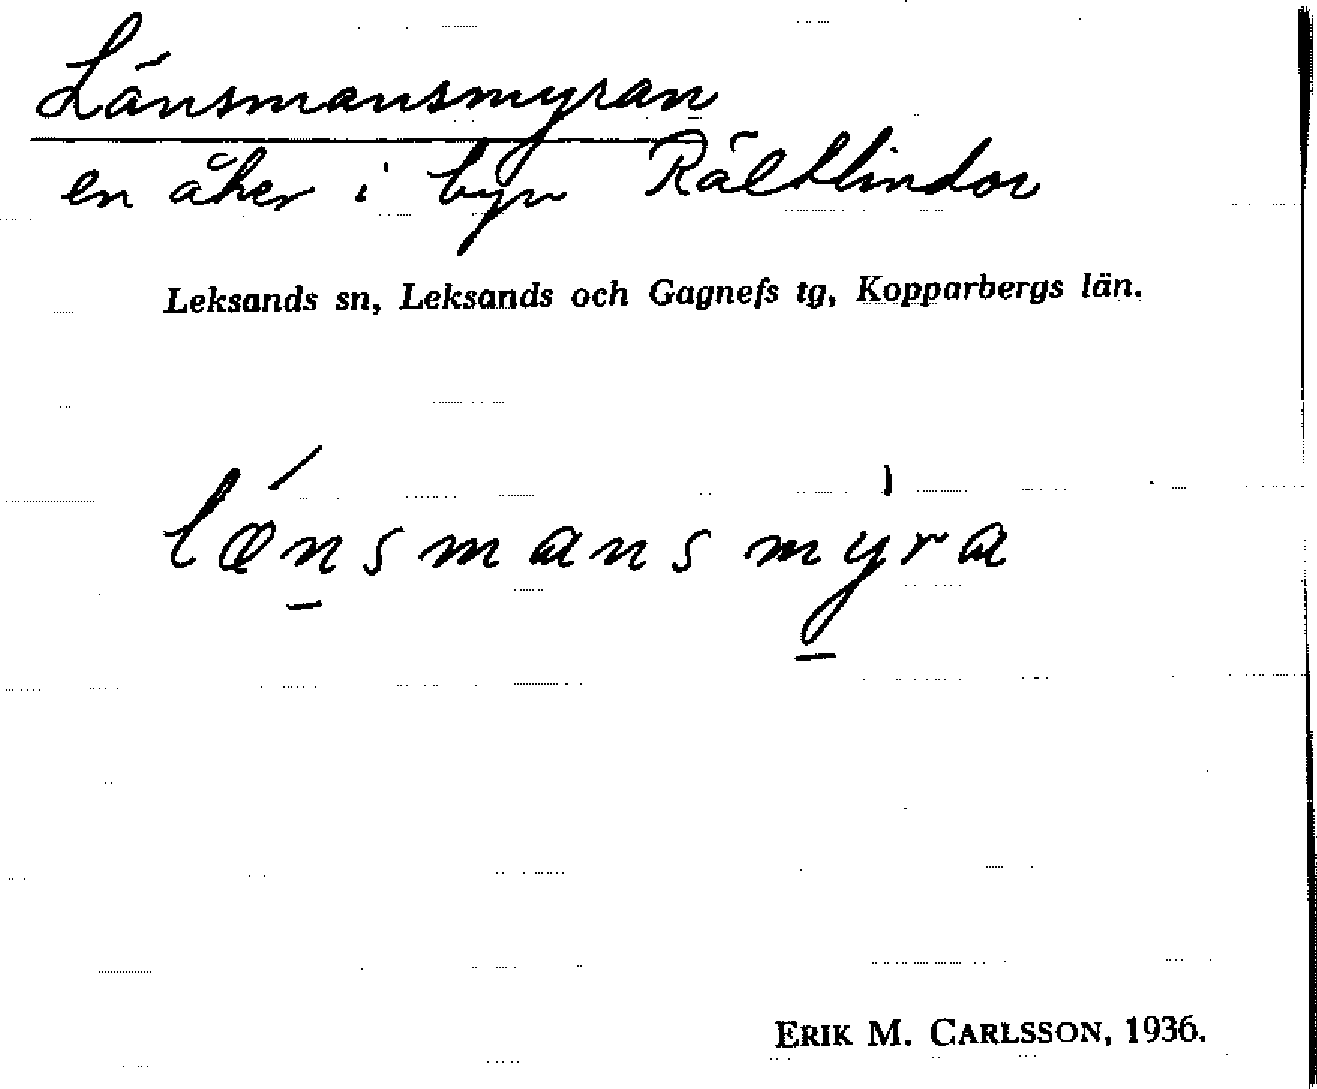 Länsmansmyran
en åker i byn Rältlindor
Leksands sn, Leksands och Gagnefs tg, Kopparbergs län.
lænsmansmyra
ERIK M. CARLSSON, 1936.